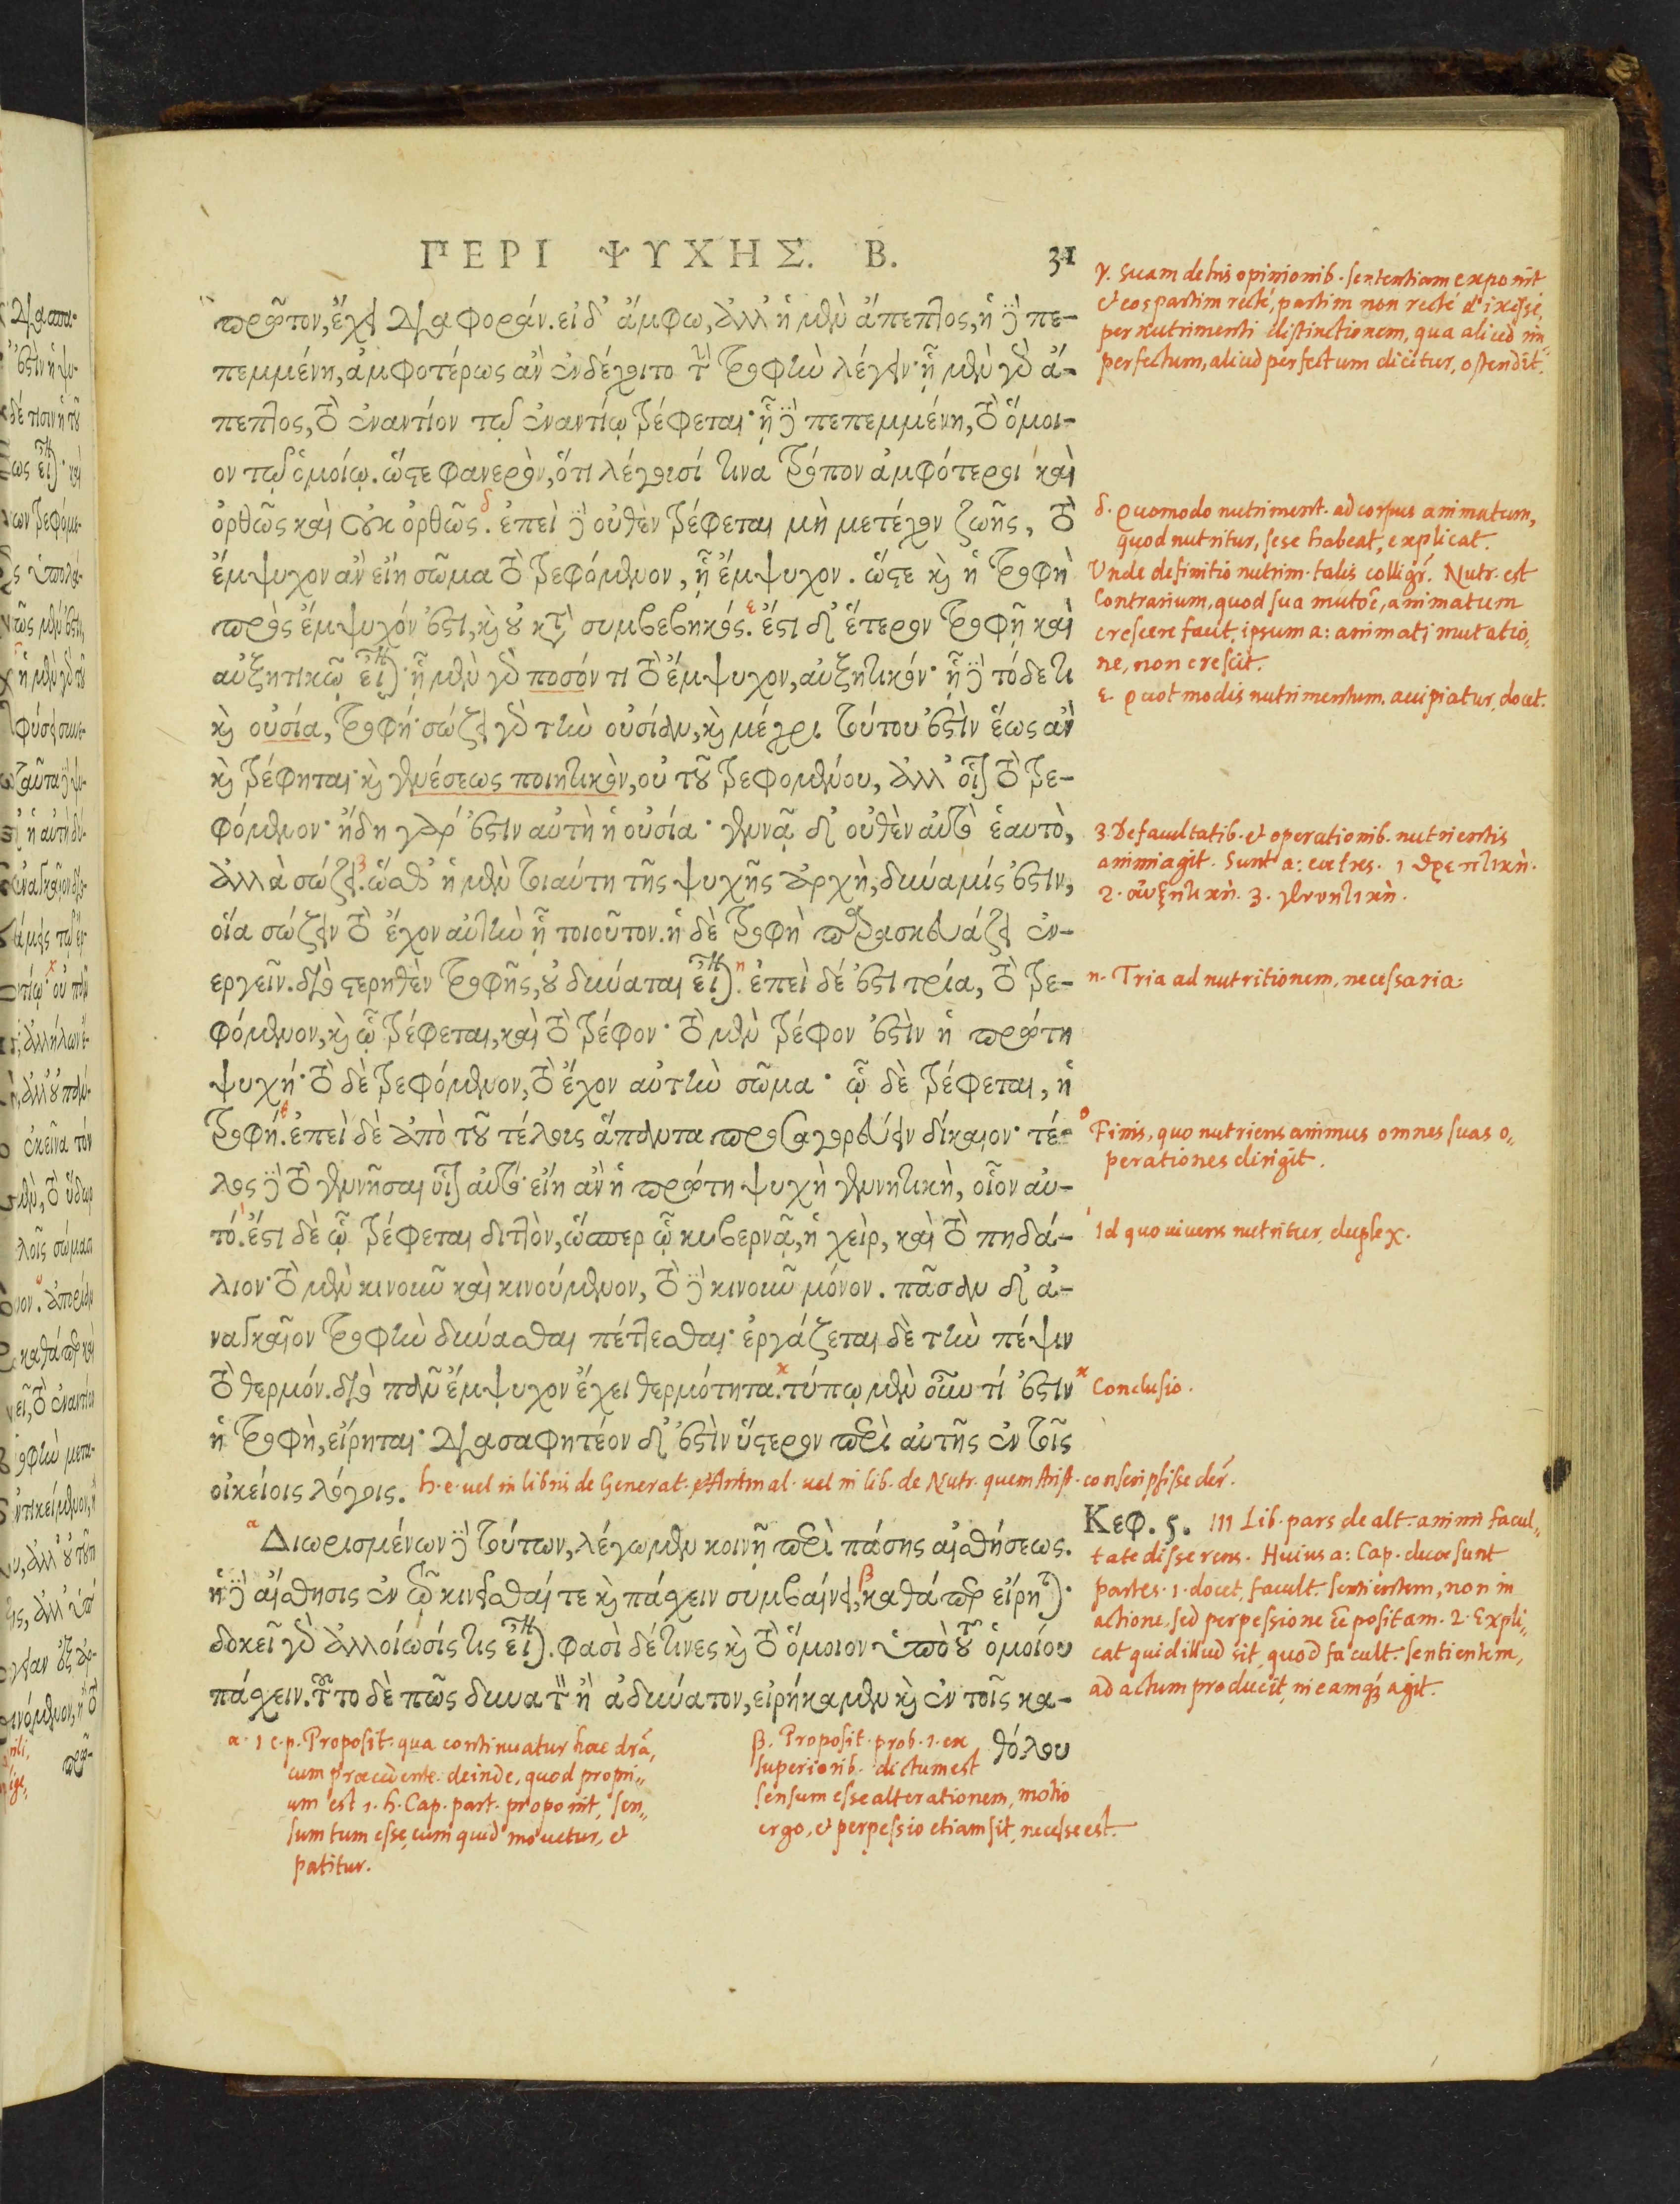 ΠΕΡΙ ΨΥΧΗΣ. Β.
31
πρῶτον, ἔχει διαφοράν. εἰ δ' ἄμφω, ἀλλ' ἡ μὲν ἄπεπτος, ἡ δὲ πε-
πεμμένη, ἀμφοτέρως ἂν ἐνδέχοιτο τὴν τροφὴν λέγειν· ᾗ μὲν γὰρ ἄ-
πεπτος, τὸ ἐναντίον τῷ ἐναντίῳ τρέφεται· ᾗ δὲ πεπεμμένη, τὸ ὅμοι-
ον τῷ ὁμοίῳ. ὥστε φανερὸν, ὅτι λέγουσί τινα τρόπον ἀμφότεροι καὶ
ὀρθῶς καὶ οὐκ ὀρθῶς. ἐπεὶ δὲ οὐθὲν τρέφεται μὴ μετέχον ζωῆς, τὸ
ἔμψυχον ἂν εἴη σῶμα τὸ τρεφόμενον, ᾗ ἔμψυχον. ὥστε καὶ ἡ τροφὴ
πρὸς ἔμψυχόν ἐστι, καὶ οὐ κατὰ συμβεβηκός. ἔστι δ' ἕτερον τροφῇ καὶ
αὐξητικῷ εἶναι· ᾗ μὲν γὰρ ποσόν τι τὸ ἔμψυχον, αὐξητικόν· ᾗ δὲ τόδε τι
καὶ οὐσία, τροφή· σώζει γὰρ τὴν οὐσίαν, καὶ μέχρι τούτου ἐστὶν ἕως ἂν
καὶ τρέφηται· καὶ γενέσεως ποιητικὸν, οὐ τοῦ τρεφομένου, ἀλλ' οἷον τὸ τρε-
φόμενον· ἤδη γάρ ἐστιν αὐτὴ ἡ οὐσία· γεννᾷ δ' οὐθὲν αὐτὸ ἑαυτὸ,
ἀλλὰ σώζει. ὥσθ' ἡ μὲν τοιαύτη τῆς ψυχῆς ἀρχὴ, δύναμίς ἐστιν,
οἵα σώζειν τὸ ἔχον αὐτὴν ᾗ τοιοῦτον. ἡ δὲ τροφὴ παρασκευάζει ἐν-
εργεῖν. διὸ στερηθὲν τροφῆς, οὐ δύναται εἶναι. ἐπεὶ δέ ἐστι τρία, τὸ τρε-
φόμενον, καὶ ᾧ τρέφεται, καὶ τὸ τρέφον· τὸ μὲν τρέφον ἐστὶν ἡ πρώτη
ψυχή· τὸ δὲ τρεφόμενον, τὸ ἔχον αὐτὴν σῶμα· ᾧ δὲ τρέφεται, ἡ
τροφή. ἐπεὶ δὲ ἀπὸ τοῦ τέλους ἅπαντα προσαγορεύειν δίκαιον· τέ-
λος δὲ τὸ γεννῆσαι οἷον αὐτό· εἴη ἂν ἡ πρώτη ψυχὴ γεννητικὴ, οἷον αὐ-
τό. ἔστι δὲ ᾧ τρέφεται διττὸν, ὥσπερ ᾧ κυβερνᾷ, ἡ χεὶρ, καὶ τὸ πηδά-
λιον· τὸ μὲν κινοῦν καὶ κινούμενον, τὸ δὲ κινοῦν μόνον. πᾶσαν δ' ἀ-
ναγκαῖον τροφὴν δύνασθαι πέττεσθαι· ἐργάζεται δὲ τὴν πέψιν
τὸ θερμόν. διὸ πᾶν ἔμψυχον ἔχει θερμότητα. τύπῳ μὲν οὖν τί ἐστιν
ἡ τροφὴ, εἴρηται· διασαφητέον δ' ἐστὶν ὕστερον περὶ αὐτῆς ἐν τοῖς
οἰκείοις λόγοις. h. e. uel in libris de Generat. et Animal. uel in lib. de Nutr. quem Arist. conscripsisse der̄.
Διωρισμένων δὲ τούτων, λέγωμεν κοινῇ περὶ πάσης αἰσθήσεως.
ἡ δὲ αἴσθησις ἐν τῷ κινεῖσθαί τε καὶ πάσχειν συμβαίνει, καθάπερ εἴρηται·
δοκεῖ γὰρ ἀλλοίωσίς τις εἶναι. φασὶ δέ τινες καὶ τὸ ὅμοιον ὑπὸ τοῦ ὁμοίου
πάσχειν. τοῦτο δὲ πῶς δυνατὸν ἢ ἀδύνατον, εἰρήκαμεν καὶ ἐν τοῖς κα-
θόλου
γ. Suam de his opinionib. sententiam exponit
et eos partim recté, partim non recté dixisse,
per nutrimenti distinctionem, qua aliud im„
perfectum, aliud perfectum dicitur, ostendit.
δ. Quomodo nutriment. ad corpus animatum,
quod nutritur, sese habeat, explicat.
Unde definitio nutrim. talis colligr̄. Nutr. est
Contrarium, quod sua mutōe, animatum
crescere facit, ipsum a: animati mutatio„
ne, non crescit.
ε Quot modis nutrimentum accipiatur, docet.
3 De facultatib. et operationib. nutrientis
animi agit. Sunt a: 1 θρεπτικὴ.
2. αὐξητικὴ. 3. γεννητικὴ.
η. Tria ad nutritionem, necessaria:
θ Finis, quo nutriens animus omnes suas o„
perationes dirigit.
ι Id quo uiuens nutritur, duplex.
κ Conclusio.
Κεφ. 5. III Lib. pars de alt. animi facul„
tate disserens. Huius a: Cap. duae sunt
partes. 1. docet, facult. sentientem, non in
actione, sed perpessione ēē positam. 2. Expli„
cat quid illud sit, quod facult. sentientem,
ad actum producit, in eamq; agit.
α. 1 c. p. Proposit. qua continuatur haec dr̄a,
cum praecedente. deinde, quod propri„
um est 1. h. Cap. part. proponit, sen„
sum tum esse, cum quid mouetur, et
patitur.
β. Proposit. prob. 1. ex
superiorib. dictum est
sensum esse alterationem, motio
ergo, et perpessio etiam sit, necesse est.